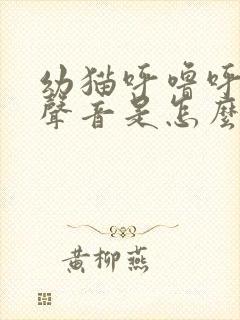 幼猫呼噜呼
聲音是怎麼
黄柳燕